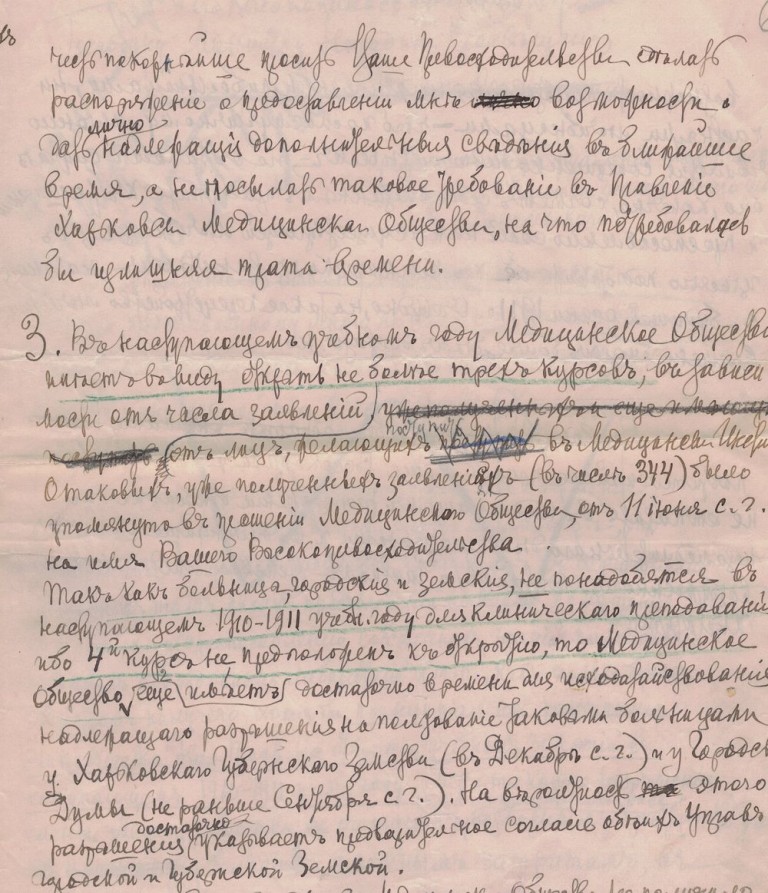 честь покорнѣйше просить Ваше Превосходительство сдѣлать
распоряженіе о предоставленіи мнѣ возможности
лично
дать надлежащія дополнительныя свѣдѣнія въ ближайшее
время, а не посылать таковое требованіе въ Правленіе
Харьковск. Медицинскаго Общества, на что потребовалась
бы излишняя трата времени.
3. Въ наступающемъ учебномъ году Медицинское Общество
имѣетъ въ виду открыть не болѣе трехъ курсовъ, въ зависи
мости отъ числа заявленій
поступить
отъ лицъ, желающихъ въ Медицинск. Инст
О таковыхъ, уже полученныхъ заявленіяхъ (въ числѣ 344) было
упомянуто въ прошеніи Медицинскаго Общества, отъ 11 іюня с. г.
на имя Вашего Высокопревосходительства
Такъ какъ больница, городскія и земскія, не понадобятся въ
наступающемъ 1910-1911 учебн. году для клиническаго преподаванія
ибо 4й курсъ не предположенъ къ открытію, то Медицинское
Общество, еще имѣетъ достаточно времени для исходатайствованія
надлежащаго разрѣшенія на пользованіе таковыми больницами
у Харьковскаго Губернскаго Земства (въ Декабрѣ с. г.) и у Городск
Думы (не раньше Сентября с. г.). На вѣроятность этого
достаточно
разрѣшенія указываетъ предварительное согласіе обѣихъ Управъ
городской и Губернской Земской.